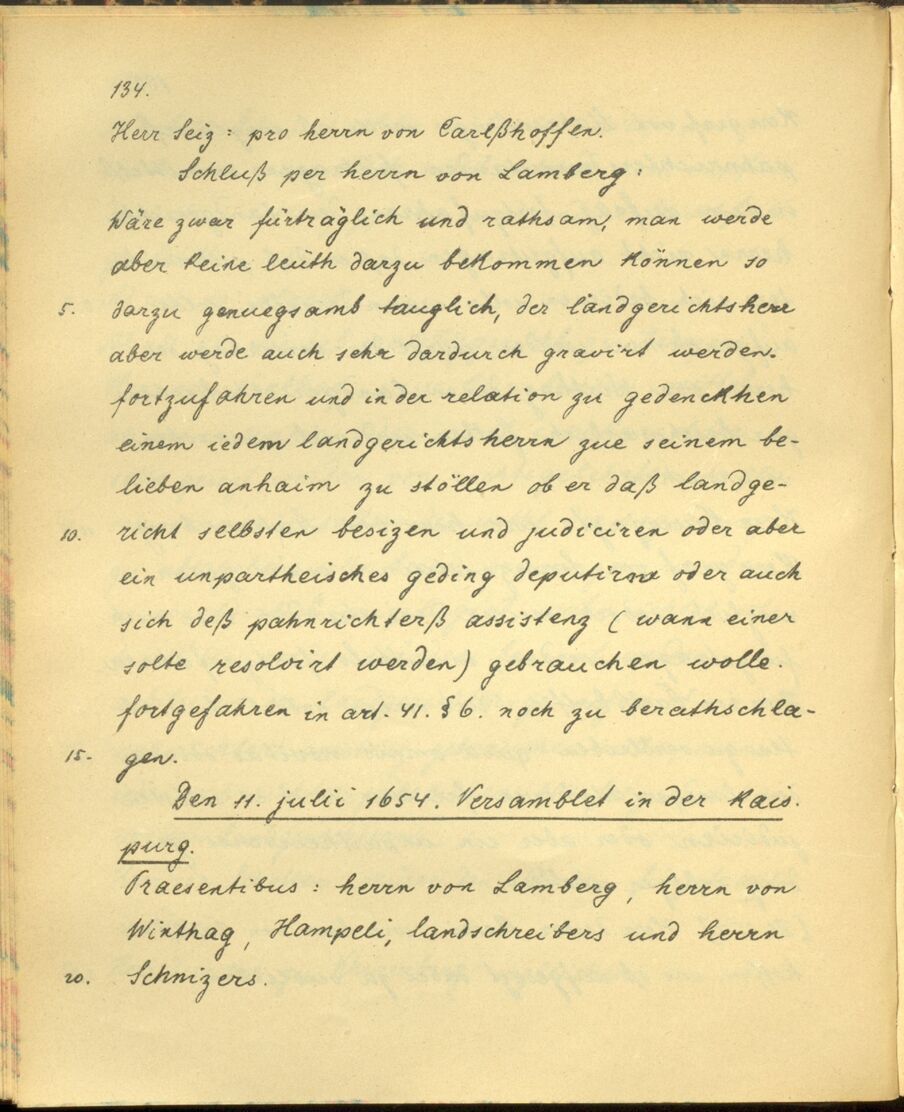 134.
Herr Seiz: pro herrn von Carlßhoffen.
Schluß per herrn von Lamberg:
Wäre zwar fürträglich und rathsam, man werde
aber keine leüth darzu bekommen können so
5. darzu genuegsamb tauglich, der landgerichtsherr
aber werde auch sehr dardurch gravirt werden.
fortzufahren und in der relation zu gedenckhen
einem iedem landgerichtsherrn zue seinem be-
lieben anhaim zu stöllen ob er daß landge-
10. richt selbsten besizen und judiciren oder aber
ein unpartheisches geding deputirn oder auch
sich deß pahnrichterß assistenz (wann einer
solte resolvirt werden) gebrauchen wolle.
fortgefahren in art. 41. § 6. noch zu berathschla-
15. gen.
Den 11. julii 1654. Versamblet in der kais.
purg.
Praesentibus: herrn von Lamberg, herrn von
Winthag, Hampeli, landschreibers und herrn
20. Schnizers.